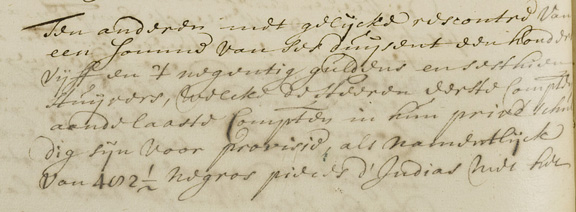 Ten anderen met gelijcke rescontre van
een somme van ses duijsent een honder
vijff en 't negentig guldens en sesthien
stuijvers, welcke de Heeren eerste Compt
aande laaste Compten in hun privé schul
dig sijn voor provisie, als namentlijck
van 402½ negros pieces d'Indias met het